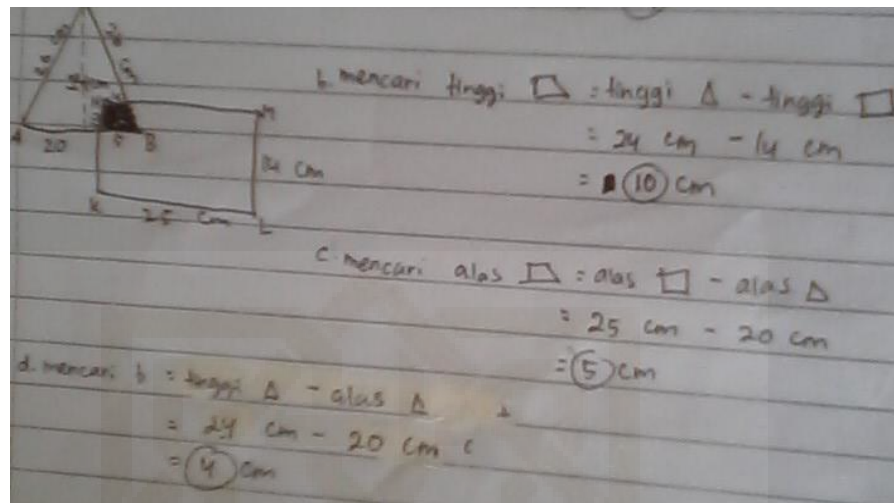 26 cm
A
20
B
M
14 cm
K
25 cm
L
b. mencari tinggi = tinggi Δ - tinggi
= 24 cm - 14 cm
= 10 cm
c. mencari alas = alas - alas Δ
= 25 cm - 20 cm
= 5 cm
d. mencari b = tinggi Δ - alas Δ
= 24 cm - 20 cm
= 4 cm